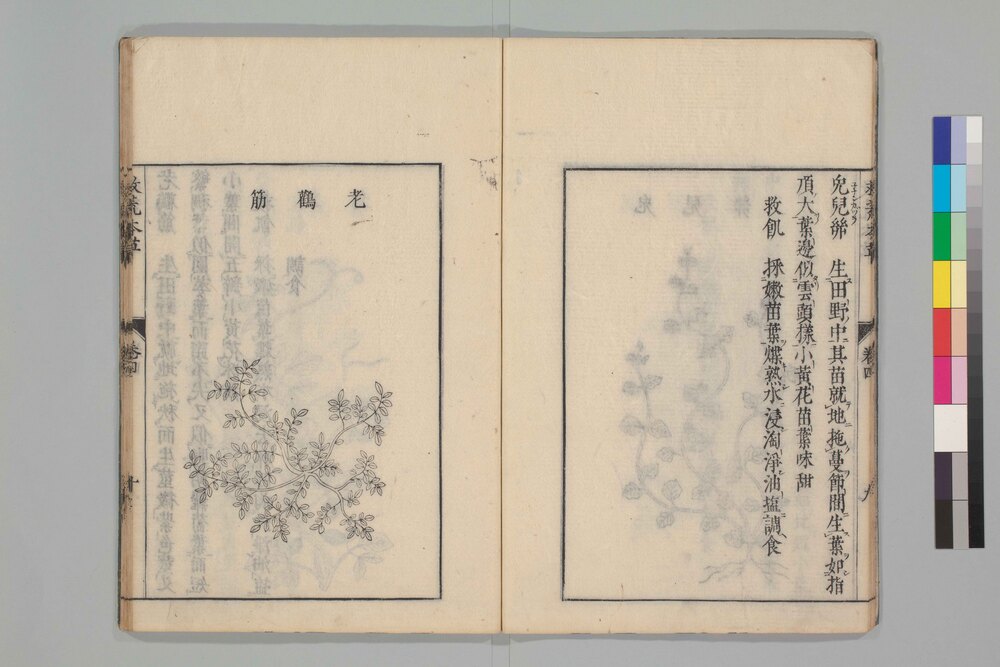 救荒本草
卷四
九
兒兒䇞 生田野中其苗就地拖蔓節間生葉如指
頂大葉邊似雲頭樣小黃花苗葉味甜
救飢 採嫩苗葉煠熟水浸淘淨油塩調食
老鸛筋
救荒本草
卷四
十